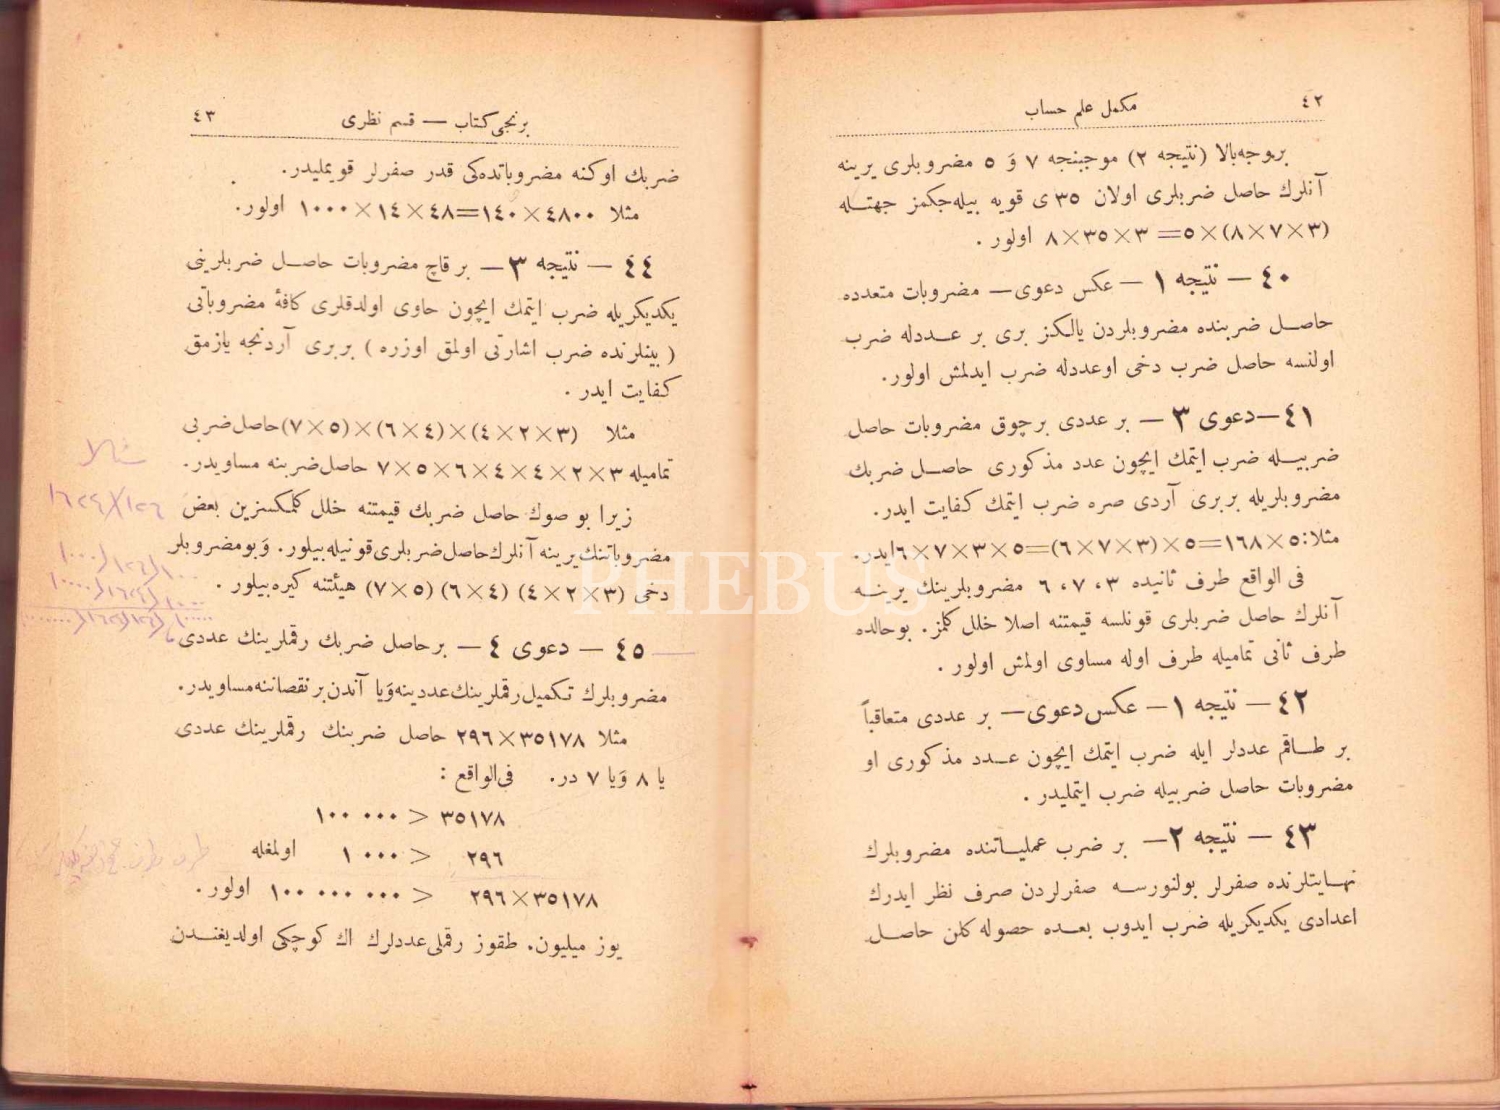 ٤٢ مكمل علم حساب
بروجه‌بالا (نتيجه ٢) موجبنجه ٧ وَ ٥ مضروبلری يرينه
آنلرك حاصل ضربلری اولان ٣٥ ی قويه بيله‌جكمز جهتــله
(٣×٧×٨)×٥= ٣×٣٥×٨ اولور .
٤٠ — نتيجه ١ — عكس دعوی — مضروبات متعدده
حاصــل ضربنده مضروبلردن يالكز بری بر عــددله ضرب
اولنسه حاصل ضرب دخی اوعددله ضرب ايدلمش اولور.
٤١—دعوی ٣ — بر عددی برچوق مضروبات حاصل
ضربيــله ضرب ايتمك ايچون عدد مذكوری حاصــل ضربك
مضروبلريله بربری آردی صره ضرب ايتمك كفايت ايدر.
مثلا:٥×١٦٨=٥×(٣×٧×٦)=٥×٣×٧×٦ايدر.
فی الواقع طرف ثانيده ٣، ٧، ٦ مضروبلرينك يرينــه
آنلرك حاصل ضربلری قونلسه قيمتنه اصلا خلل كلمز. بوحالده
طرف ثانی تماميله طرف اوله مساوی اولمش اولور .
٤٢ — نتيجه ١ — عكس دعوی — بر عددی متعاقباً
بر طــاقم عددلر ايله ضرب ايتمك ايچون عــدد مذكوری او
مضروبات حاصل ضربيله ضرب ايتمليدر .
٤٣ — نتيجه ٢ — بر ضرب عمليــاتنده مضروبلرك
نهــايتلرنده صفرلر بولنورســه صفرلردن صرف نظر ايدرك
اعدادی يكديكريله ضرب ايدوب بعــده حصوله كلن حاصــل
برنجی كتاب — قسم نظری ٤٣
ضربك اوكنه مضروباتده‌كی قدر صفرلر قويمليدر.
مثلا ٤٨٠٠×١٤٠=٤٨×١٤×١٠٠٠ اولور.
٤٤ — نتيجه ٣ — بر قاچ مضروبات حاصــل ضربلرينی
يكديكريله ضرب ايتمك ايچون حاوی اولدقلری كافهٔ مضروباتی
( بينلرنده ضرب اشارتی اولمق اوزره ) بربری آردنجه يازمق
كفايت ايدر .
مثلا (٣×٢×٤)×(٤×٦)×(٥×٧)حاصل‌ضربی
تماميله ٣×٢×٤×٤×٦×٥×٧ حاصل‌ضربنه مساويدر.
زيرا بو صوك حاصل ضربك قيمتنه خلل كلمكسزين بعض
مضروباتنك‌يرينه آنلرك‌حاصل‌ضربلری‌قونيله‌بيلور. وَبومضروبلر
دخی (٣×٢×٤) (٤×٦) (٥×٧) هيئتنه كيره‌بيلور .
٤٥ — دعوی ٤ — برحاصل ضربك رقملرينك عددی
مضروبلرك تكميل‌رقملرينك‌عددينه‌وَيا آندن‌برنقصاننه‌مساويدر.
مثلا ٣٥١٧٨×٢٩٦ حاصل ضربنك رقملرينك عددی
يا ٨ وَيا ٧ در. فی‌الواقع :
٣٥١٧٨ < ١٠٠ ٠٠٠
٢٩٦ < ١ ٠٠٠ اولمغله
٣٥١٧٨×٢٩٦ < ١٠٠ ٠٠٠ ٠٠٠ اولور .
يوز ميليون. طقوز رقملی‌عددلرك اك كوچكی اولديغنــدن
PHEBUS